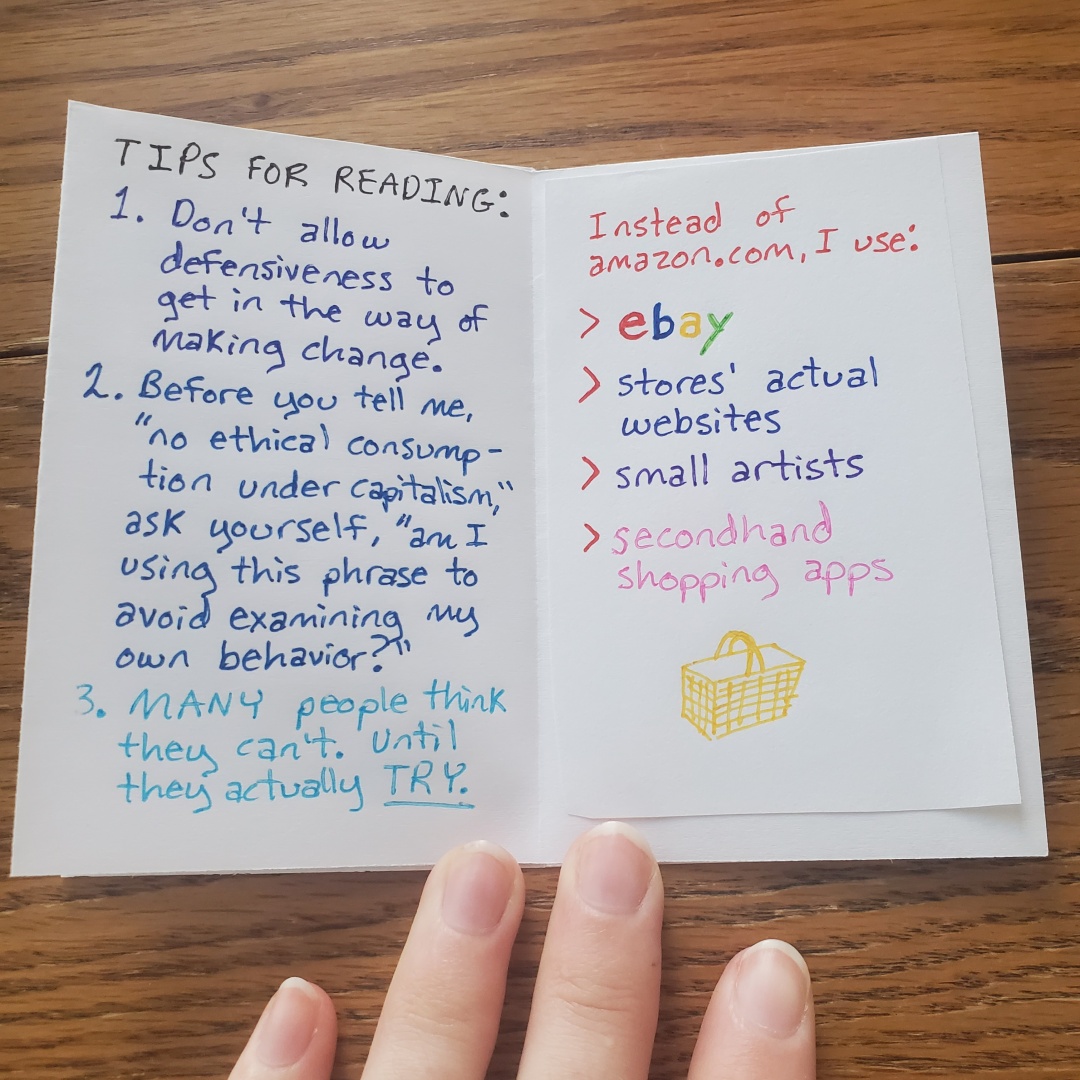 TIPS FOR READING:
1. Don't allow
defensiveness to
get in the way of
making change.
2. Before you tell me,
"no ethical consump-
tion under capitalism,"
ask yourself, "am I
using this phrase to
avoid examining my
own behavior?"
3. MANY people think
they can't. Until
they actually TRY.
Instead of
amazon.com, I use:
> ebay
> stores' actual
websites
> small artists
> secondhand
shopping apps